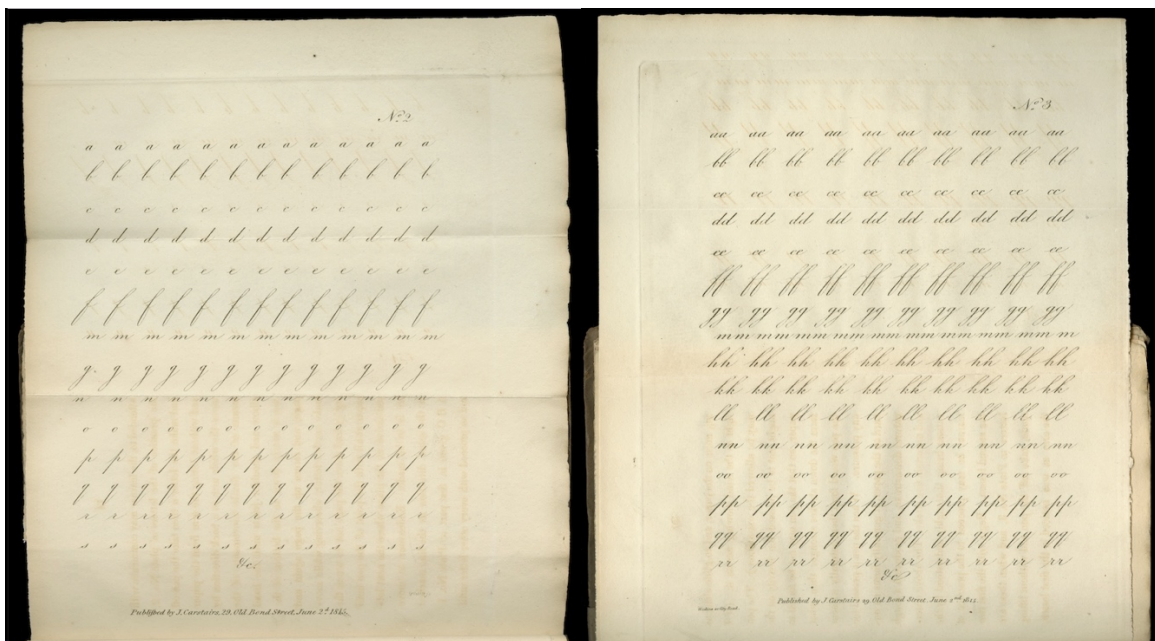 No. 2
a a a a a a a a a a a a a
b b b b b b b b b b b b b
c c c c c c c c c c c c c
d d d d d d d d d d d d d
e e e e e e e e e e e e e
f f f f f f f f f f f f f
m m m m m m m m m m m m m
g g g g g g g g g g g g g
n n n n n n n n n n n n n
o o o o o o o o o o o o o
p p p p p p p p p p p p p
q q q q q q q q q q q q q
r r r r r r r r r r r r r
s s s s s s s s s s s s s
&c
Published by J. Carstairs, 29, Old Bond Street, June 2d. 1815.
No. 3
aa aa aa aa aa aa aa aa aa aa
bb bb bb bb bb bb bb bb bb bb
cc cc cc cc cc cc cc cc cc cc
dd dd dd dd dd dd dd dd dd dd
ee ee ee ee ee ee ee ee ee ee
ff ff ff ff ff ff ff ff ff ff
gg gg gg gg gg gg gg gg gg gg
mm mm mm mm mm mm mm mm mm m
hh hh hh hh hh hh hh hh hh hh
kk kk kk kk kk kk kk kk kk kk
ll ll ll ll ll ll ll ll ll ll
nn nn nn nn nn nn nn nn nn nn
oo oo oo oo oo oo oo oo oo oo
pp pp pp pp pp pp pp pp pp pp
qq qq qq qq qq qq qq qq qq qq
rr rr rr rr rr rr rr rr rr rr
&c
Published by J. Carstairs 29 Old Bond Street, June 2nd 1815